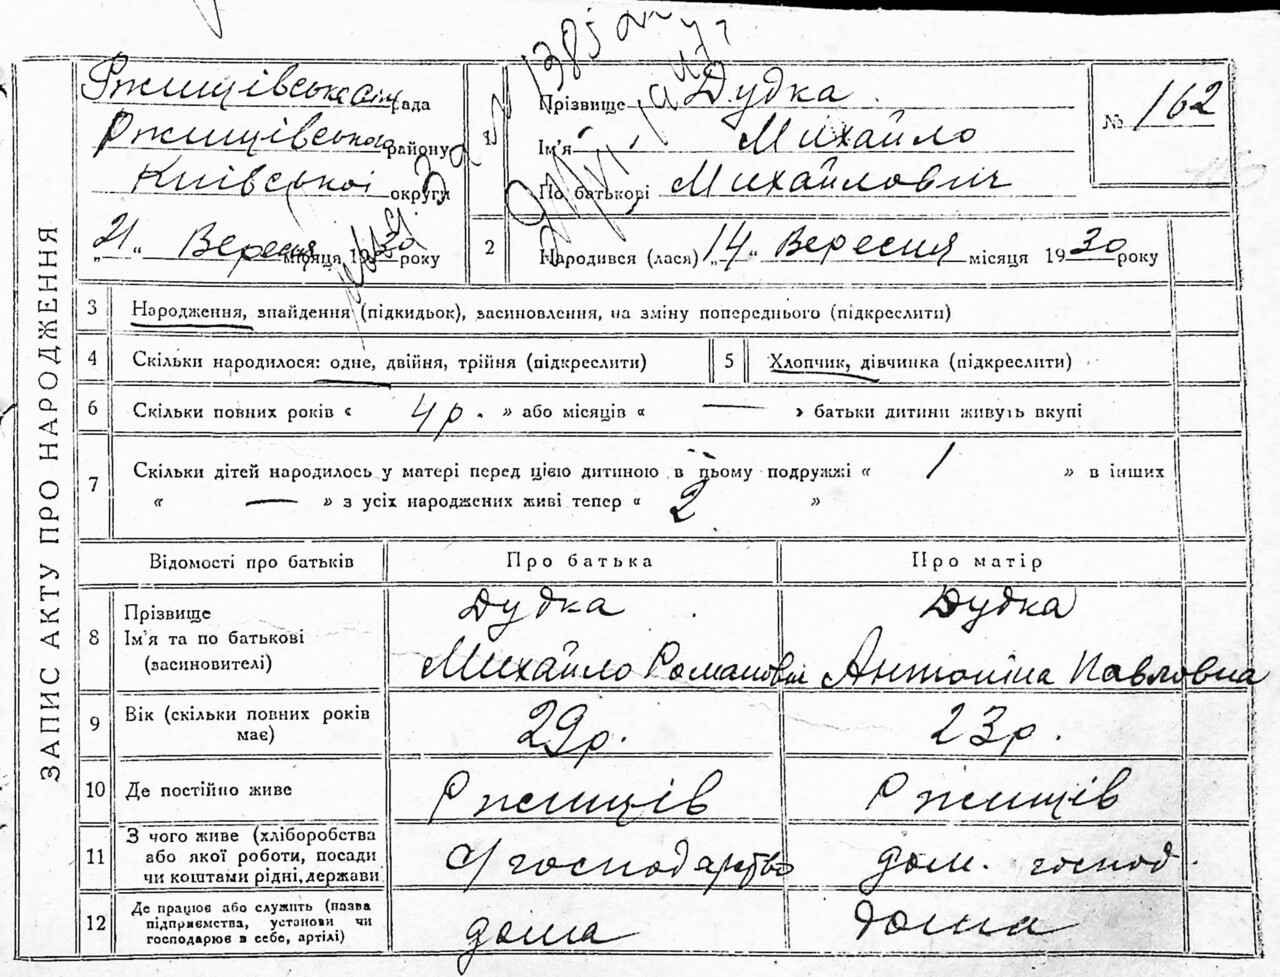 ЗАПИС АКТУ ПРО НАРОДЖЕННЯ
Ржищівська сільрада
Ржищівського району
Київської округи
„21" Вересня місяця 1930 року
1
Прізвище Дудка
Ім'я Михайло
По батькові Михайлович
№ 162
2 Народився (лася) „14" Вересня місяця 1930 року
3 Народження, знайдення (підкидьок), засиновлення, на зміну попереднього (підкреслити)
4 Скільки народилося: одне, двійня, трійня (підкреслити) 5 Хлопчик, дівчинка (підкреслити)
6 Скільки повних років « 4 р. » або місяців « — » батьки дитини живуть вкупі
7 Скільки дітей народилось у матері перед цією дитиною в цьому подружжі « 1 » в інших
« — » з усіх народжених живі тепер « 2 »
Відомості про батьків Про батька Про матір
8 Прізвище Дудка Дудка
Ім'я та по батькові
(засиновителі) Михайло Романович Антоніна Павловна
9 Вік (скільки повних років
має) 29 р. 23 р.
10 Де постійно живе Ржищів Ржищів
11 З чого живе (хліборобства
або якої роботи, посади
чи коштами рідні, держави с/господарство дом. господ.
12 Де працює або служить (назва
підприємства, установи чи
господарює в себе, артілі) дома дома